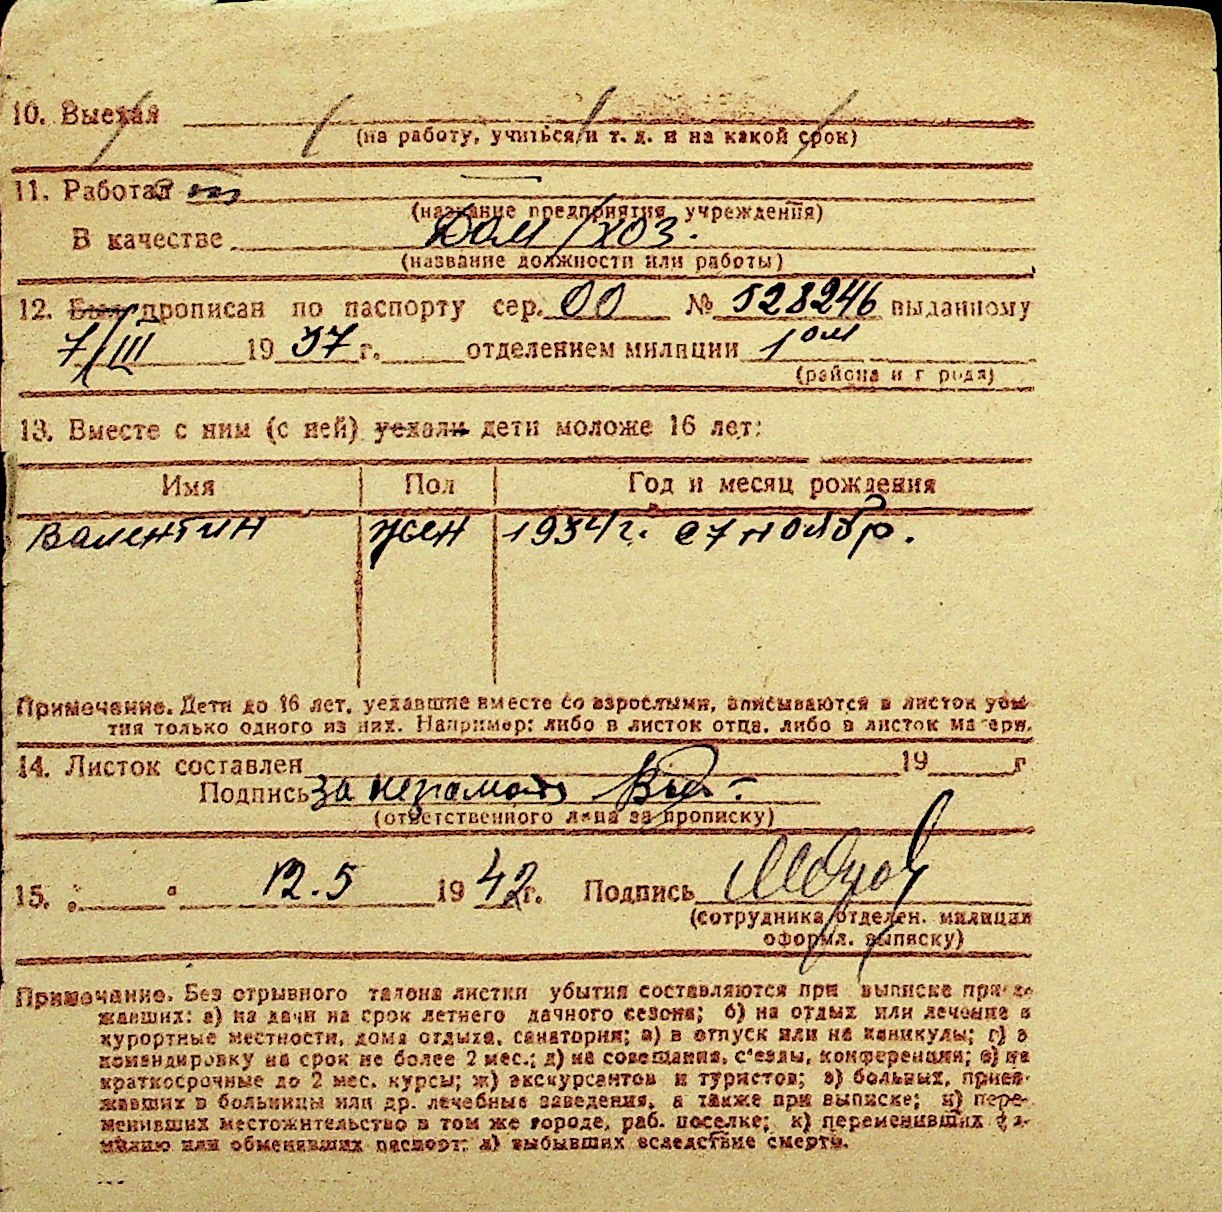 10. Выехал
(на работу, учиться и т. д. и на какой срок)
11. Работал
(название предприятия учреждения)
В качестве Дом/хоз.
(название должности или работы)
12. Был прописан по паспорту сер. 00 № 528246 выданному
7/III 19 37 г. отделением милиции 1 ом
(района и г рода)
13. Вместе с ним (с ней) уехали дети моложе 16 лет:
Имя Пол Год и месяц рождения
Валентин жен 1934 г. 27 ноябр.
Примечание. Дети до 16 лет, уехавшие вместе со взрослыми, вписываются в листок убы-
тия только одного из них. Например: либо в листок отца, либо в листок матери.
14. Листок составлен 19 г
Подпись за неграмот
(ответственного лица за прописку)
15. „ “ 12.5 19 42 г. Подпись
(сотрудника отделен. милиции
оформл. выписку)
Примечание. Без отрывного талона листки убытия составляются при выписке прие-
жавших: а) на дачи на срок летнего дачного сезона; б) на отдых или лечение в
курортные местности, дома отдыха, санатория; в) в отпуск или на каникулы; г) в
командировку на срок не более 2 мес.; д) на совещания, с'езды, конференции; е) на
краткосрочные до 2 мес. курсы; ж) экскурсантов и туристов; з) больных, приез-
жавших в больницы или др. лечебные заведения, а также при выписке; и) пере-
менивших местожительство в том же городе, раб. поселке; к) переменивших фа-
милию или обменявших паспорт; л) выбывших вследствие смерти.